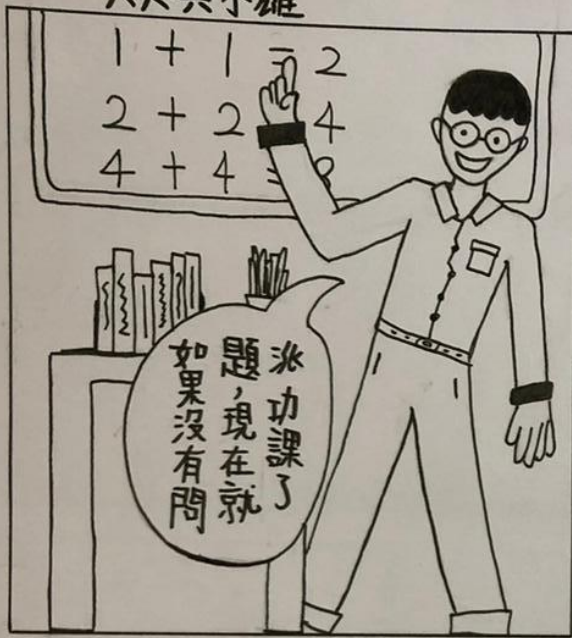 1 + 1 = 2
2 + 2 4
4 + 4 = 8
如果沒有問
題,現在就
派功課了